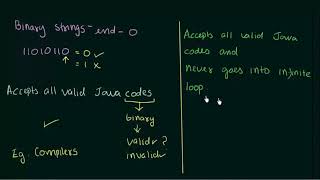 Binary strings - end - 0
11010110 = 0 ✓
= 1 x
Accepts all valid Java codes
binary
valid ?
invalid
Eg. Compilers
Accepts all valid Java
codes and
never goes into infinite
loop